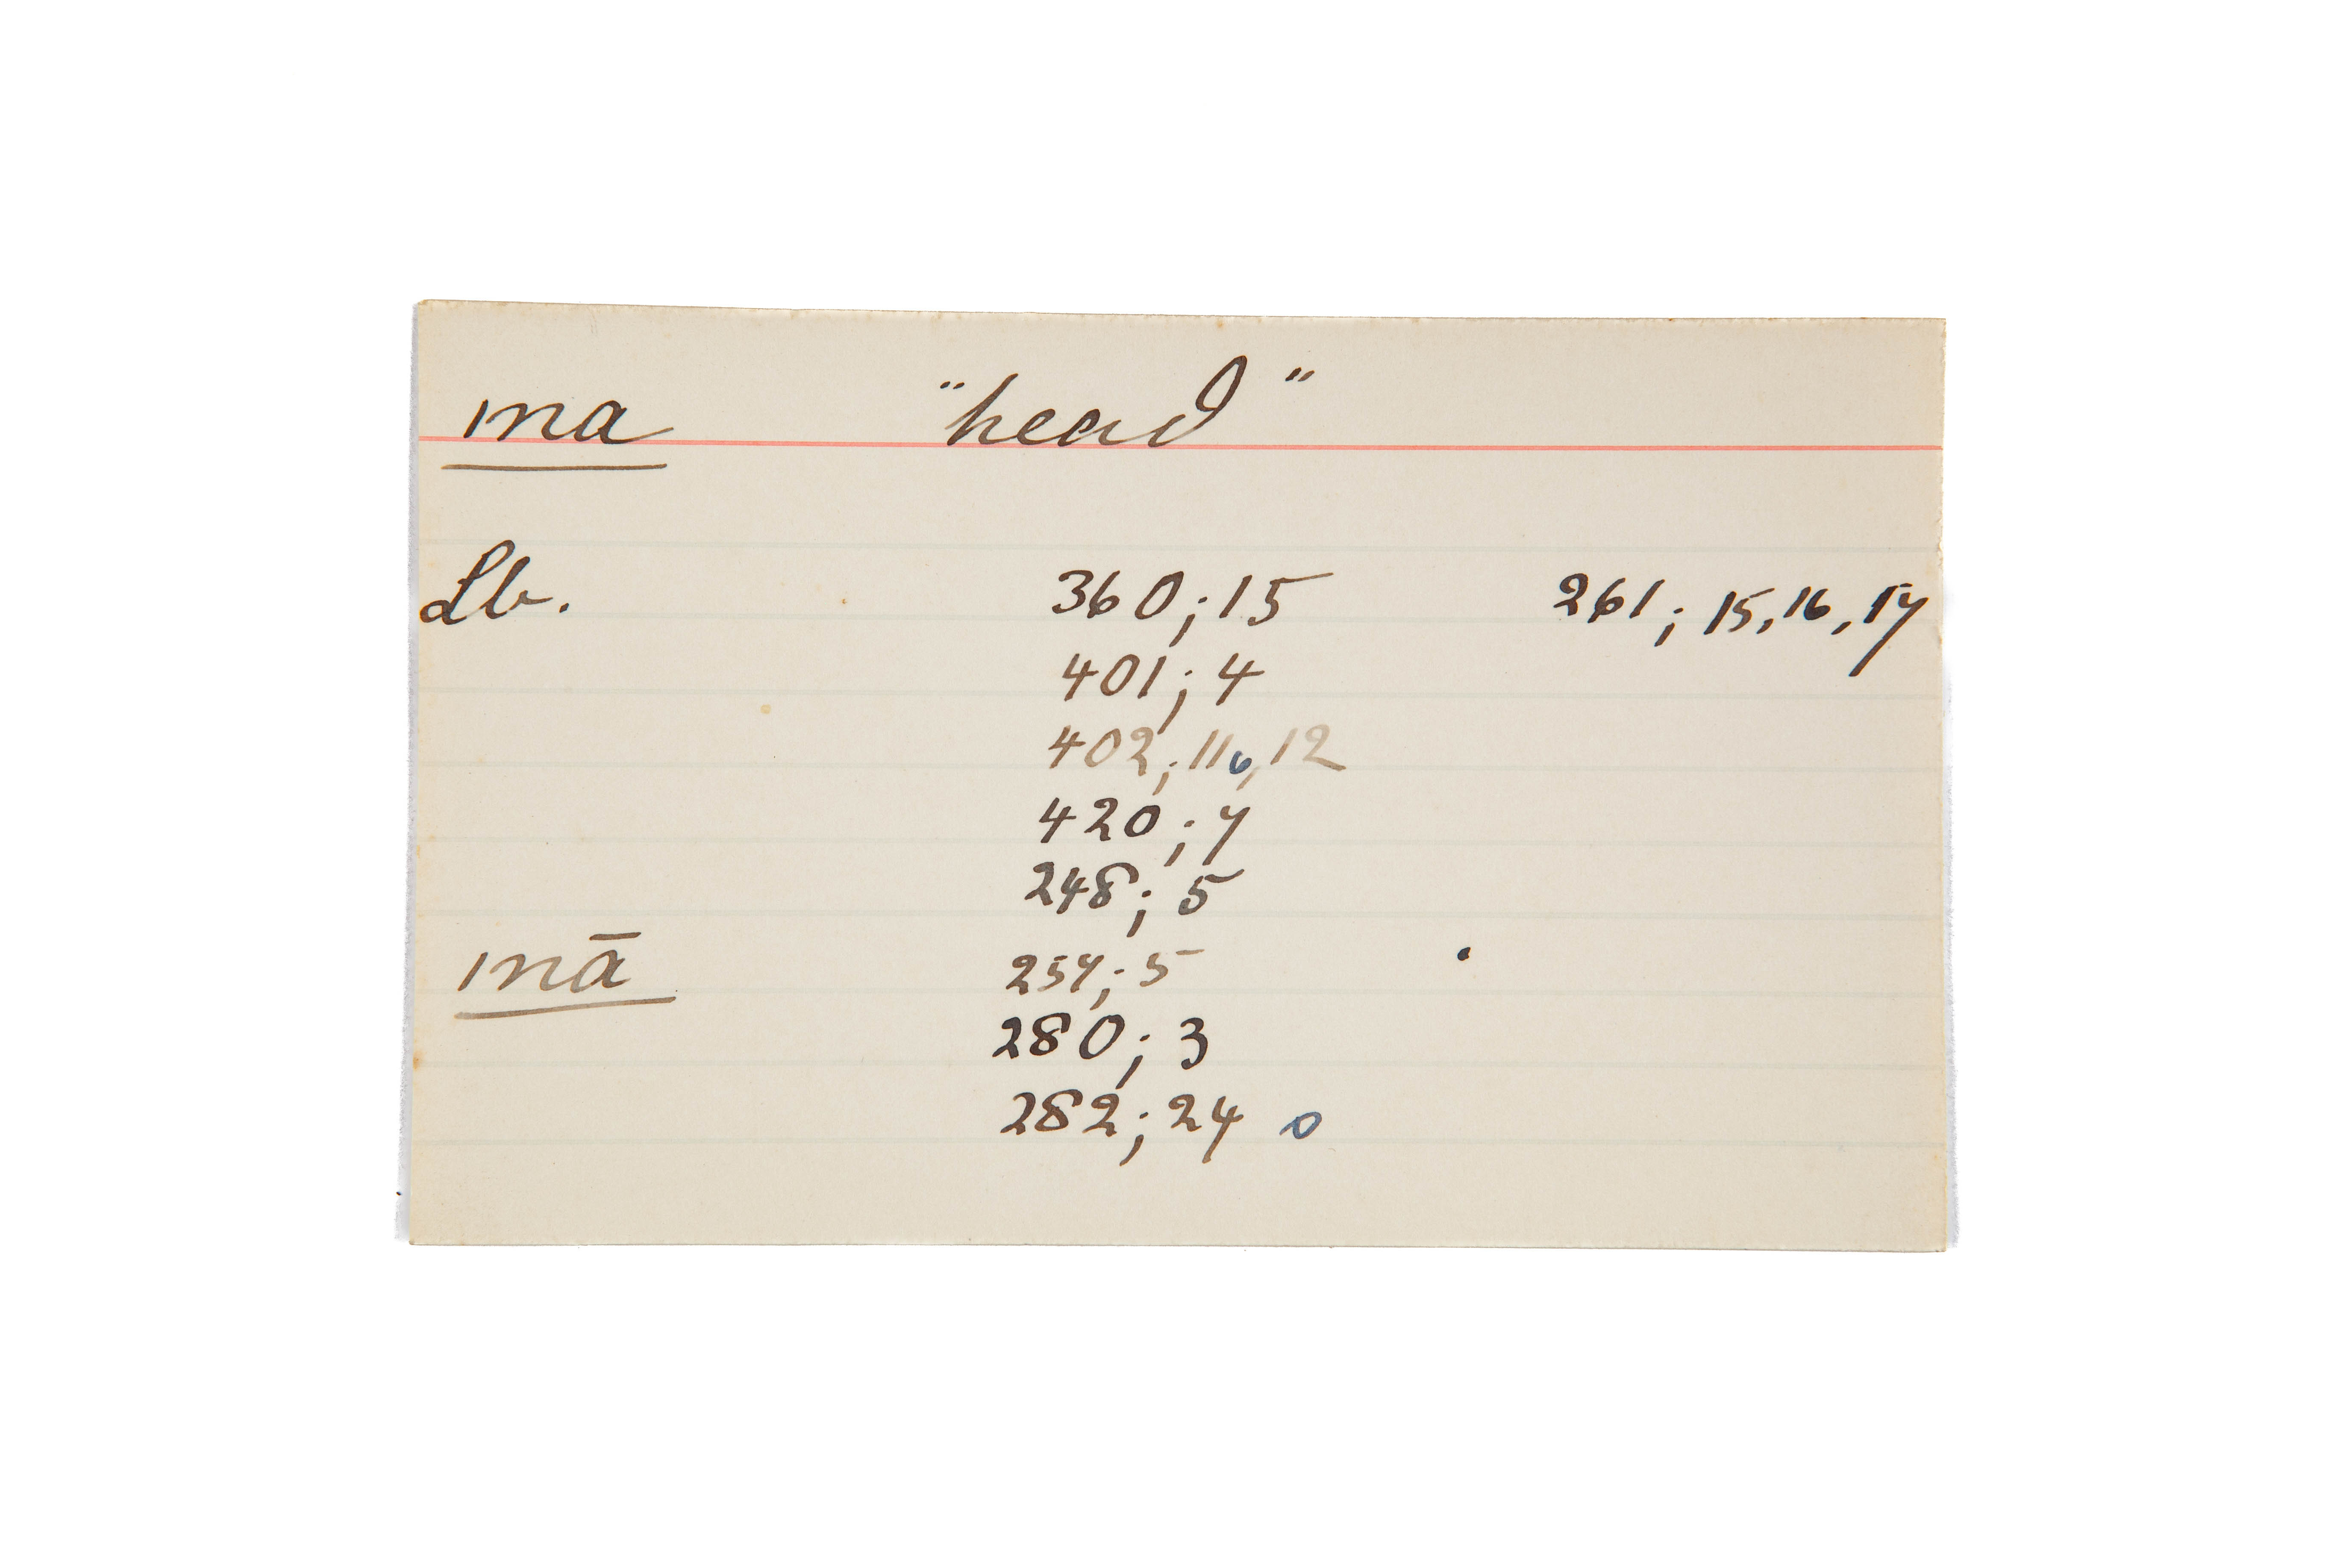 ma "head"
Lb. 360;15 261; 15, 16, 17
401; 4
402; 11o, 12
420; 7
248; 5
mā 257; 5
280; 3
282; 24 o